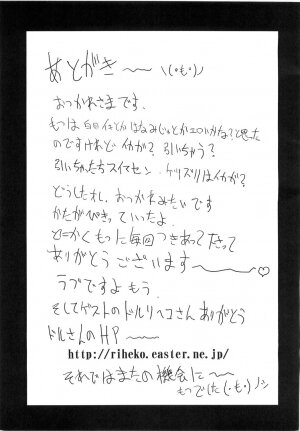 あとがき〜〜 \(・も・)ﾉ
おつかれさまです.
もつは白目イキとかはなみじるとかエロいかな?と思った
のですけれど イカが? 引いちゃう?
引いちゃったらスイマセン. ケツズリはイカが?
おつかれみたいです
かたがぴきっていったよ.
とにかくもつに毎回つきあって下さって
ありがとう ございます〜〜♡
ラブですよ もう.
そしてゲストのドルリヘコさん ありがとう
ドルさんのHP 〜〜
http://riheko.easter.ne.jp/
それではまたの機会に〜
もつでした(・も・)ﾉｼ